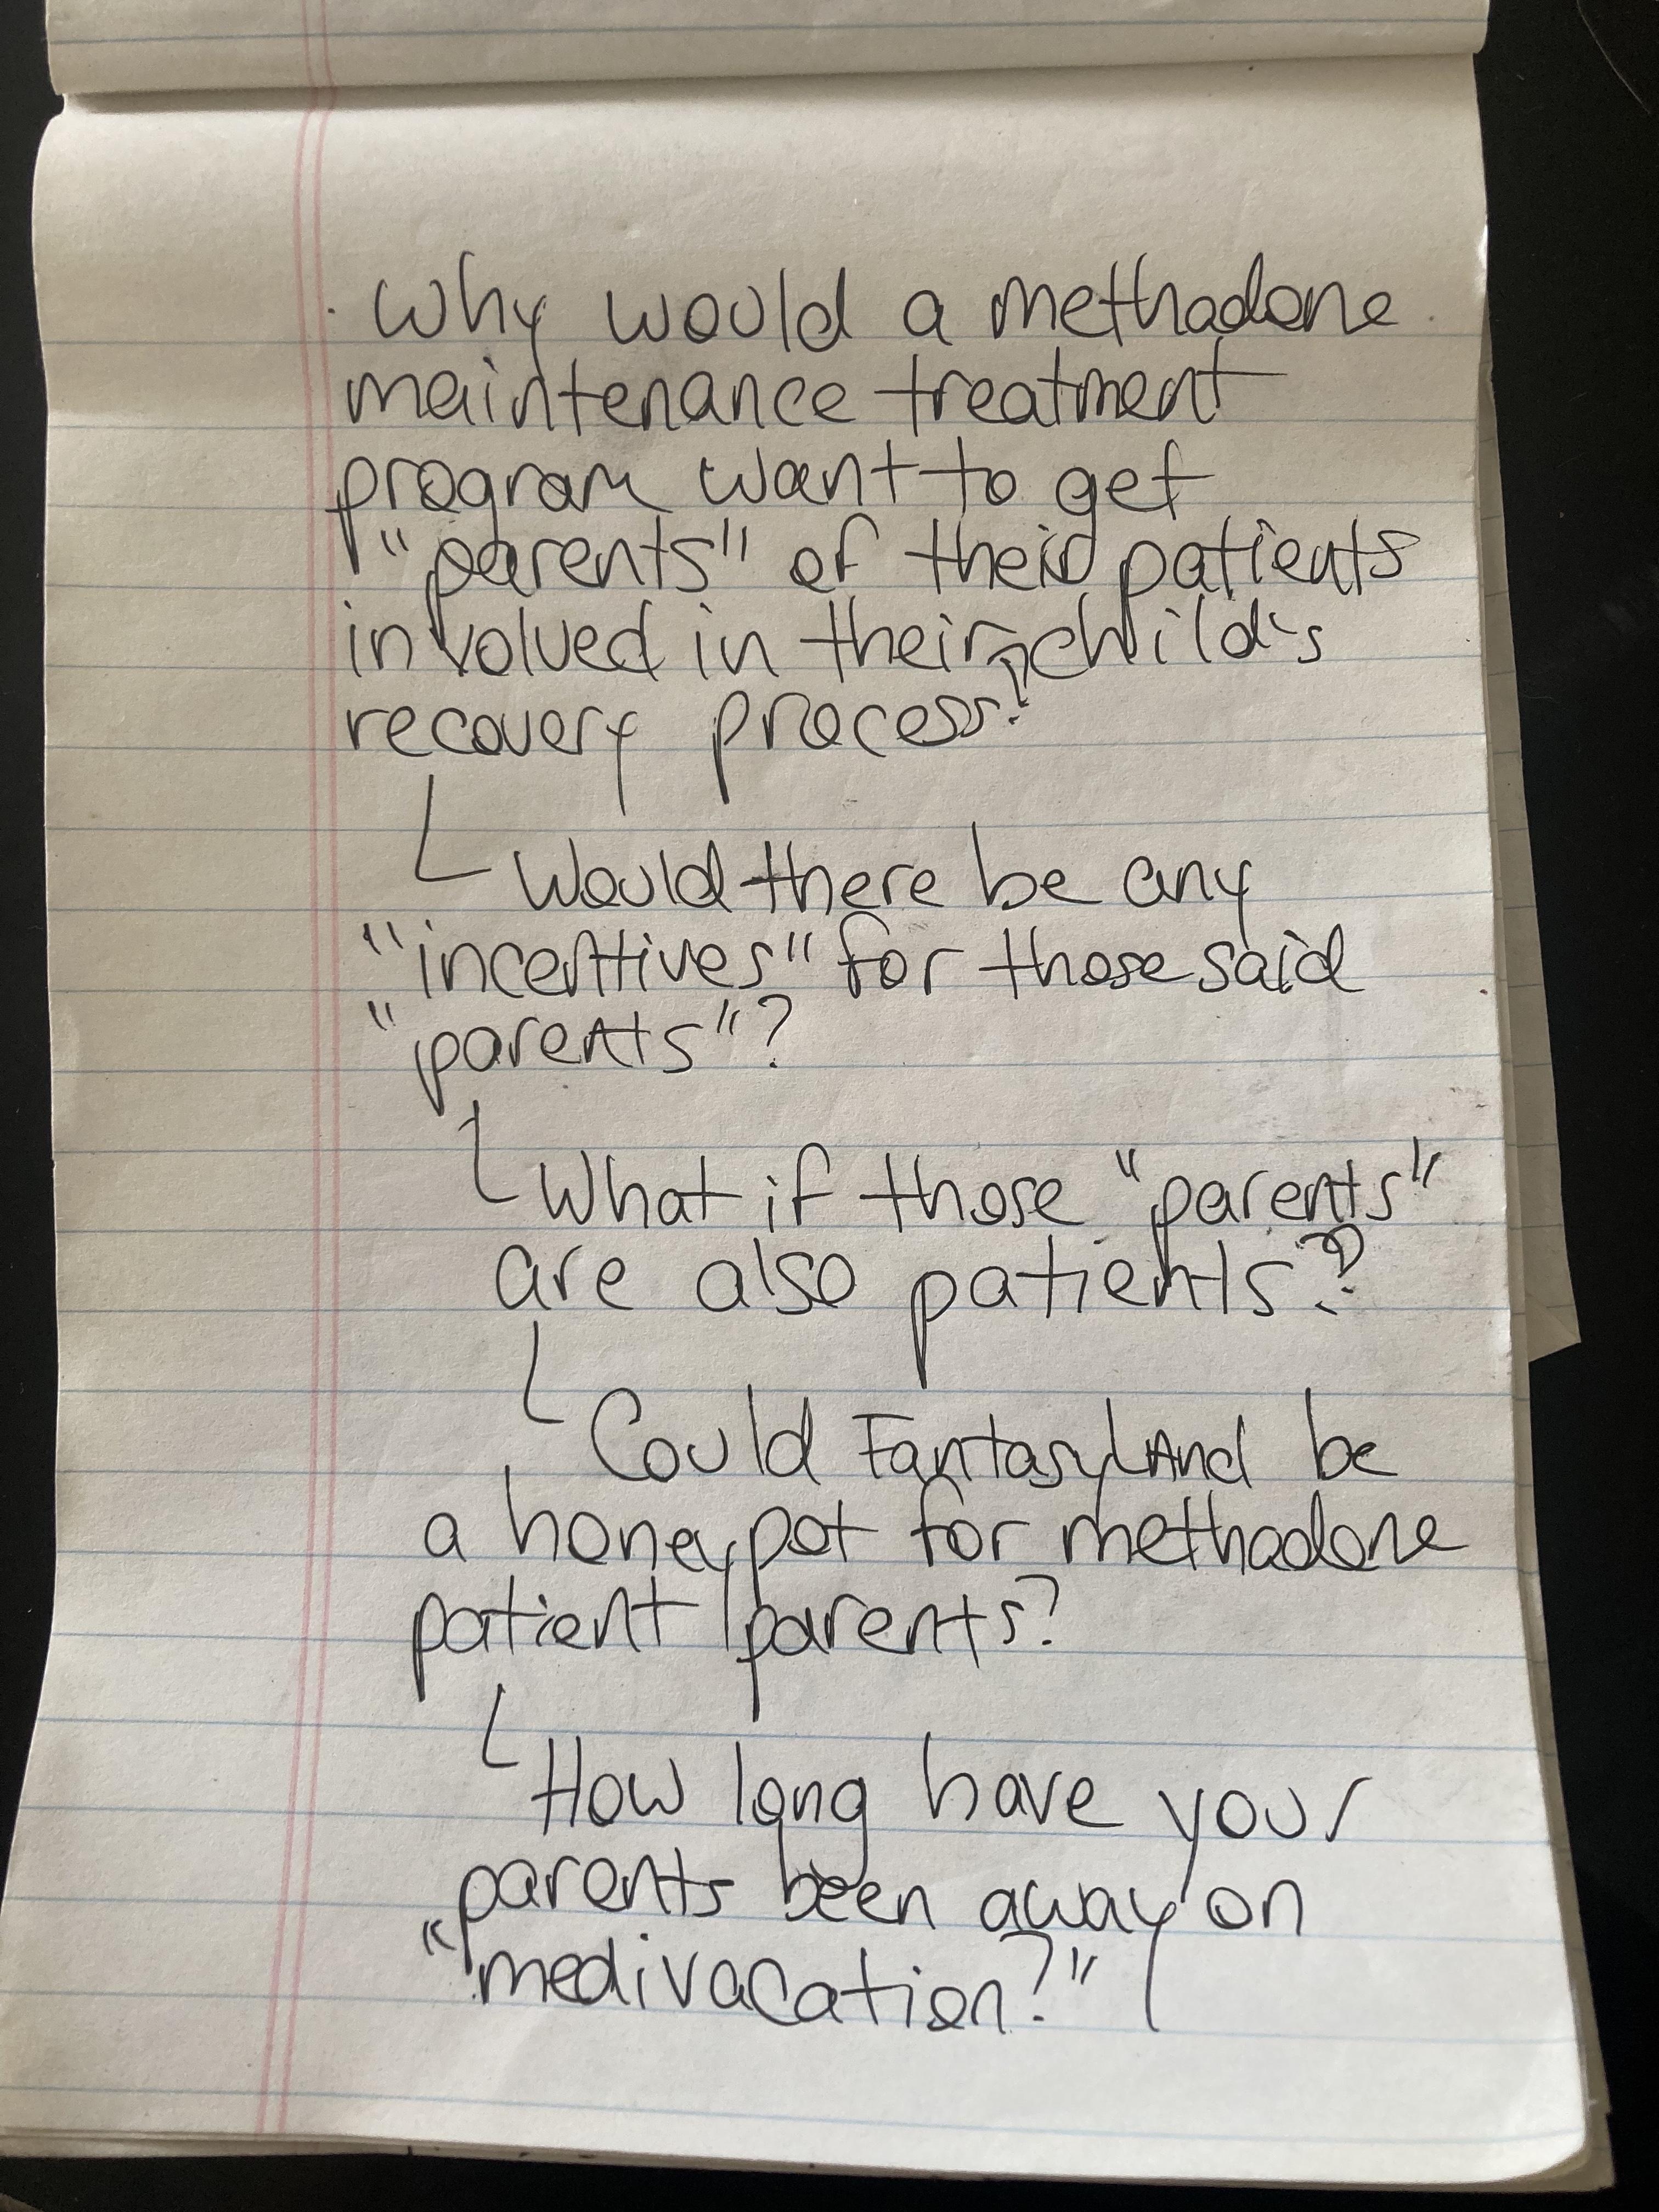 . Why would a methadone
maintenance treatment
program want to get
"parents" of their patients
involved in their child's
recovery process?
Would there be any
"incentives" for those said
"parents"?
What if those "parents"
are also patients?
Could FantasyLAnd be
a honeypot for methadone
patient/parents?
How long have your
parents been away on
"medivacation?"